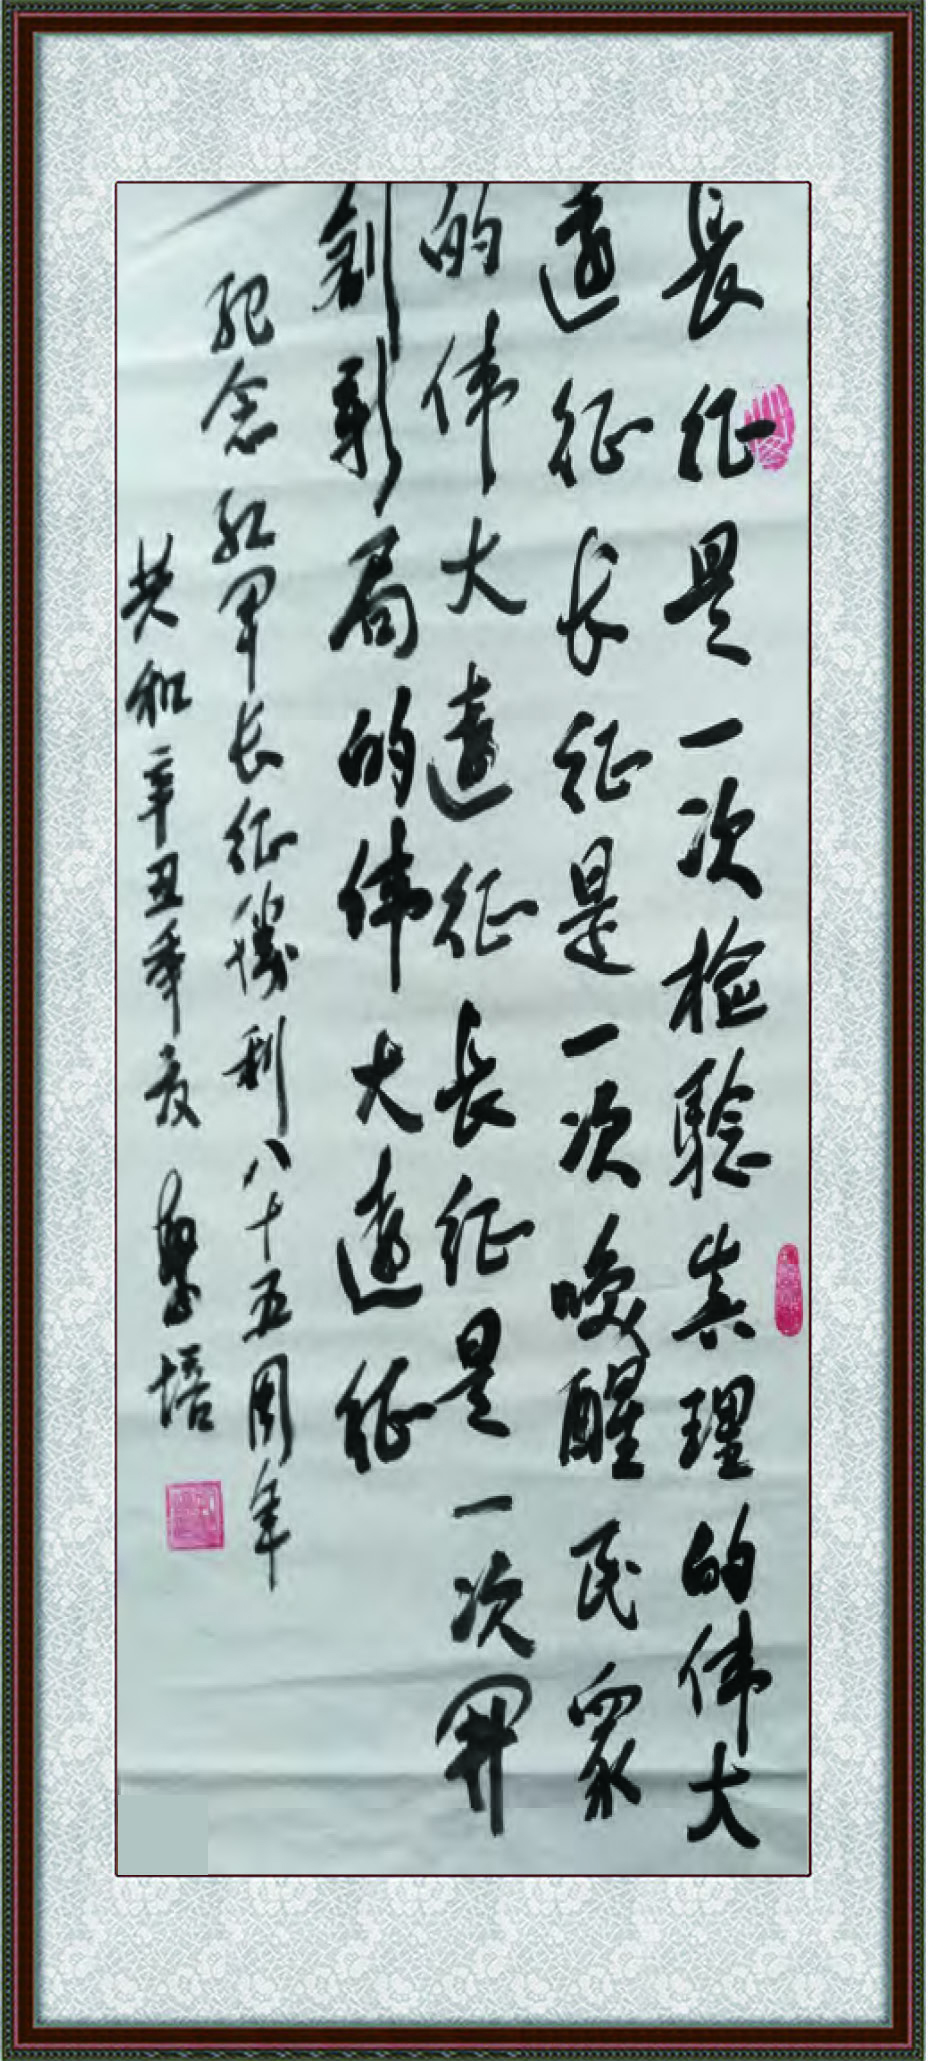 長征是一次检驗真理的伟大
遠征长征是一次唤醒民眾
的伟大遠征長征是一次開
創新局的伟大遠征
紀念红军长征勝利八十五周年
共和辛丑年夏